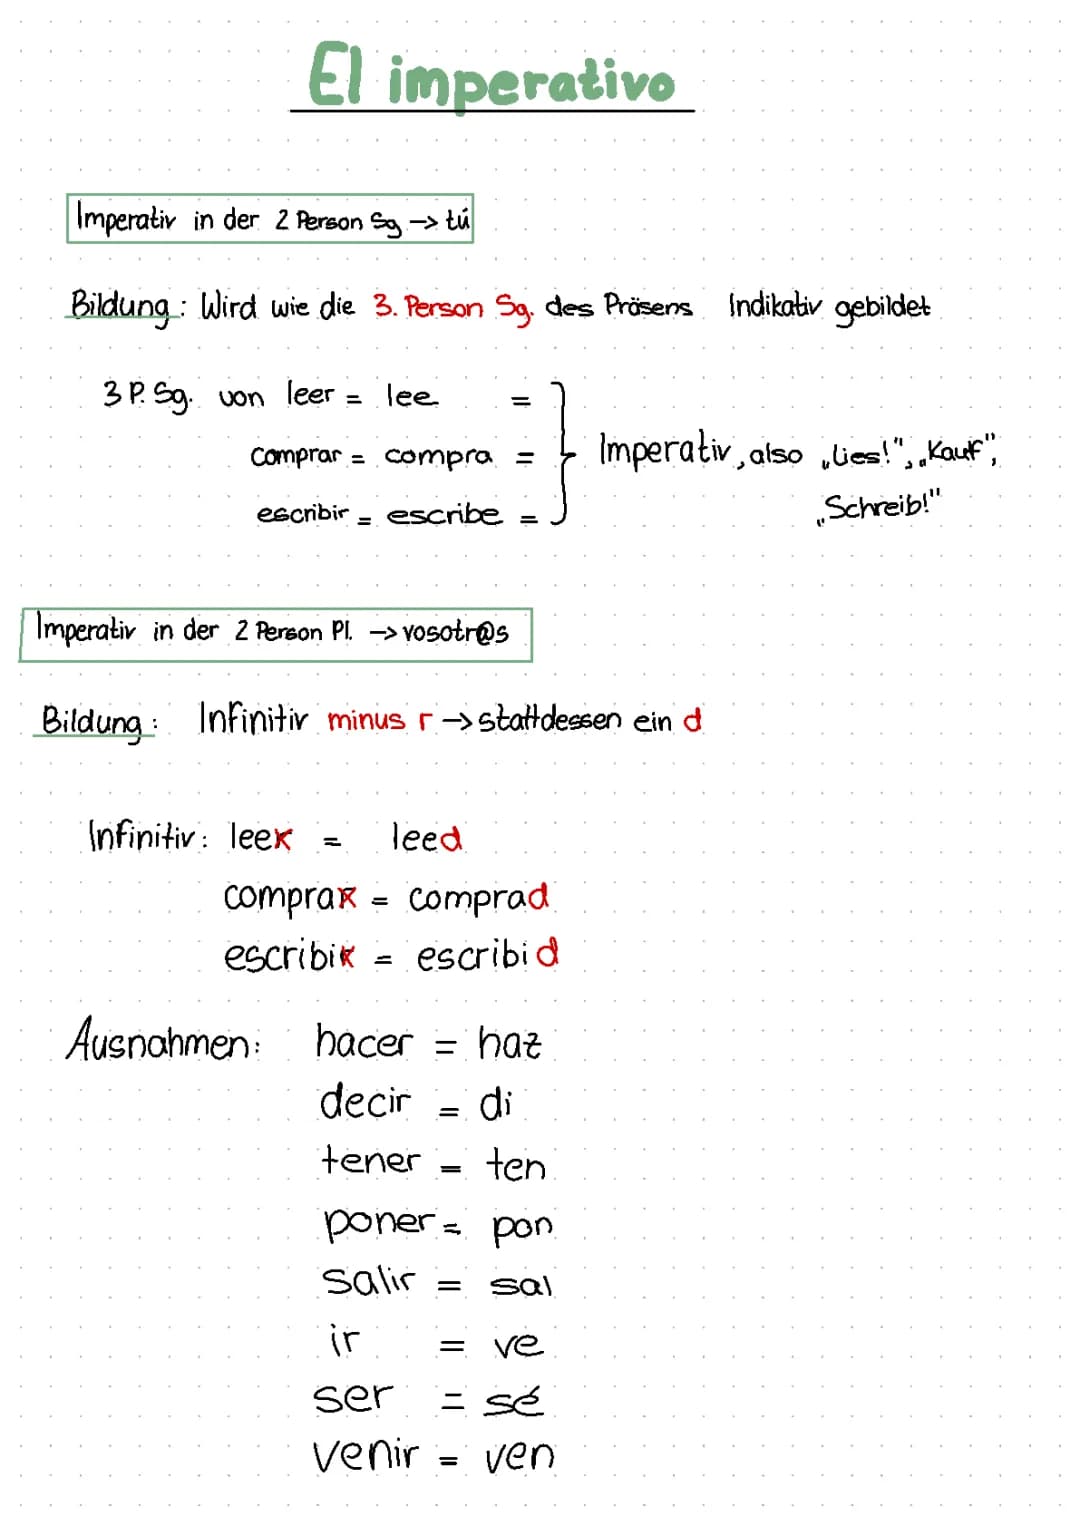 El imperativo
Imperativ in der 2 Person Sg → tú
Bildung: Wird wie die 3. Person Sg. des Präsens Indikativ gebildet
3 P. Sg. von leer = lee =
comprar = compra = } Imperativ, also „Lies!", „Kauf",
escribir = escribe = „Schreib!"
Imperativ in der 2 Person Pl. → vosotr@s
Bildung: Infinitiv minus r → stattdessen ein d
Infinitiv: leer = leed
comprar = comprad
escribir = escribid
Ausnahmen: hacer = haz
decir = di
tener = ten
poner = pon
salir = sal
ir = ve
ser = sé
venir = ven